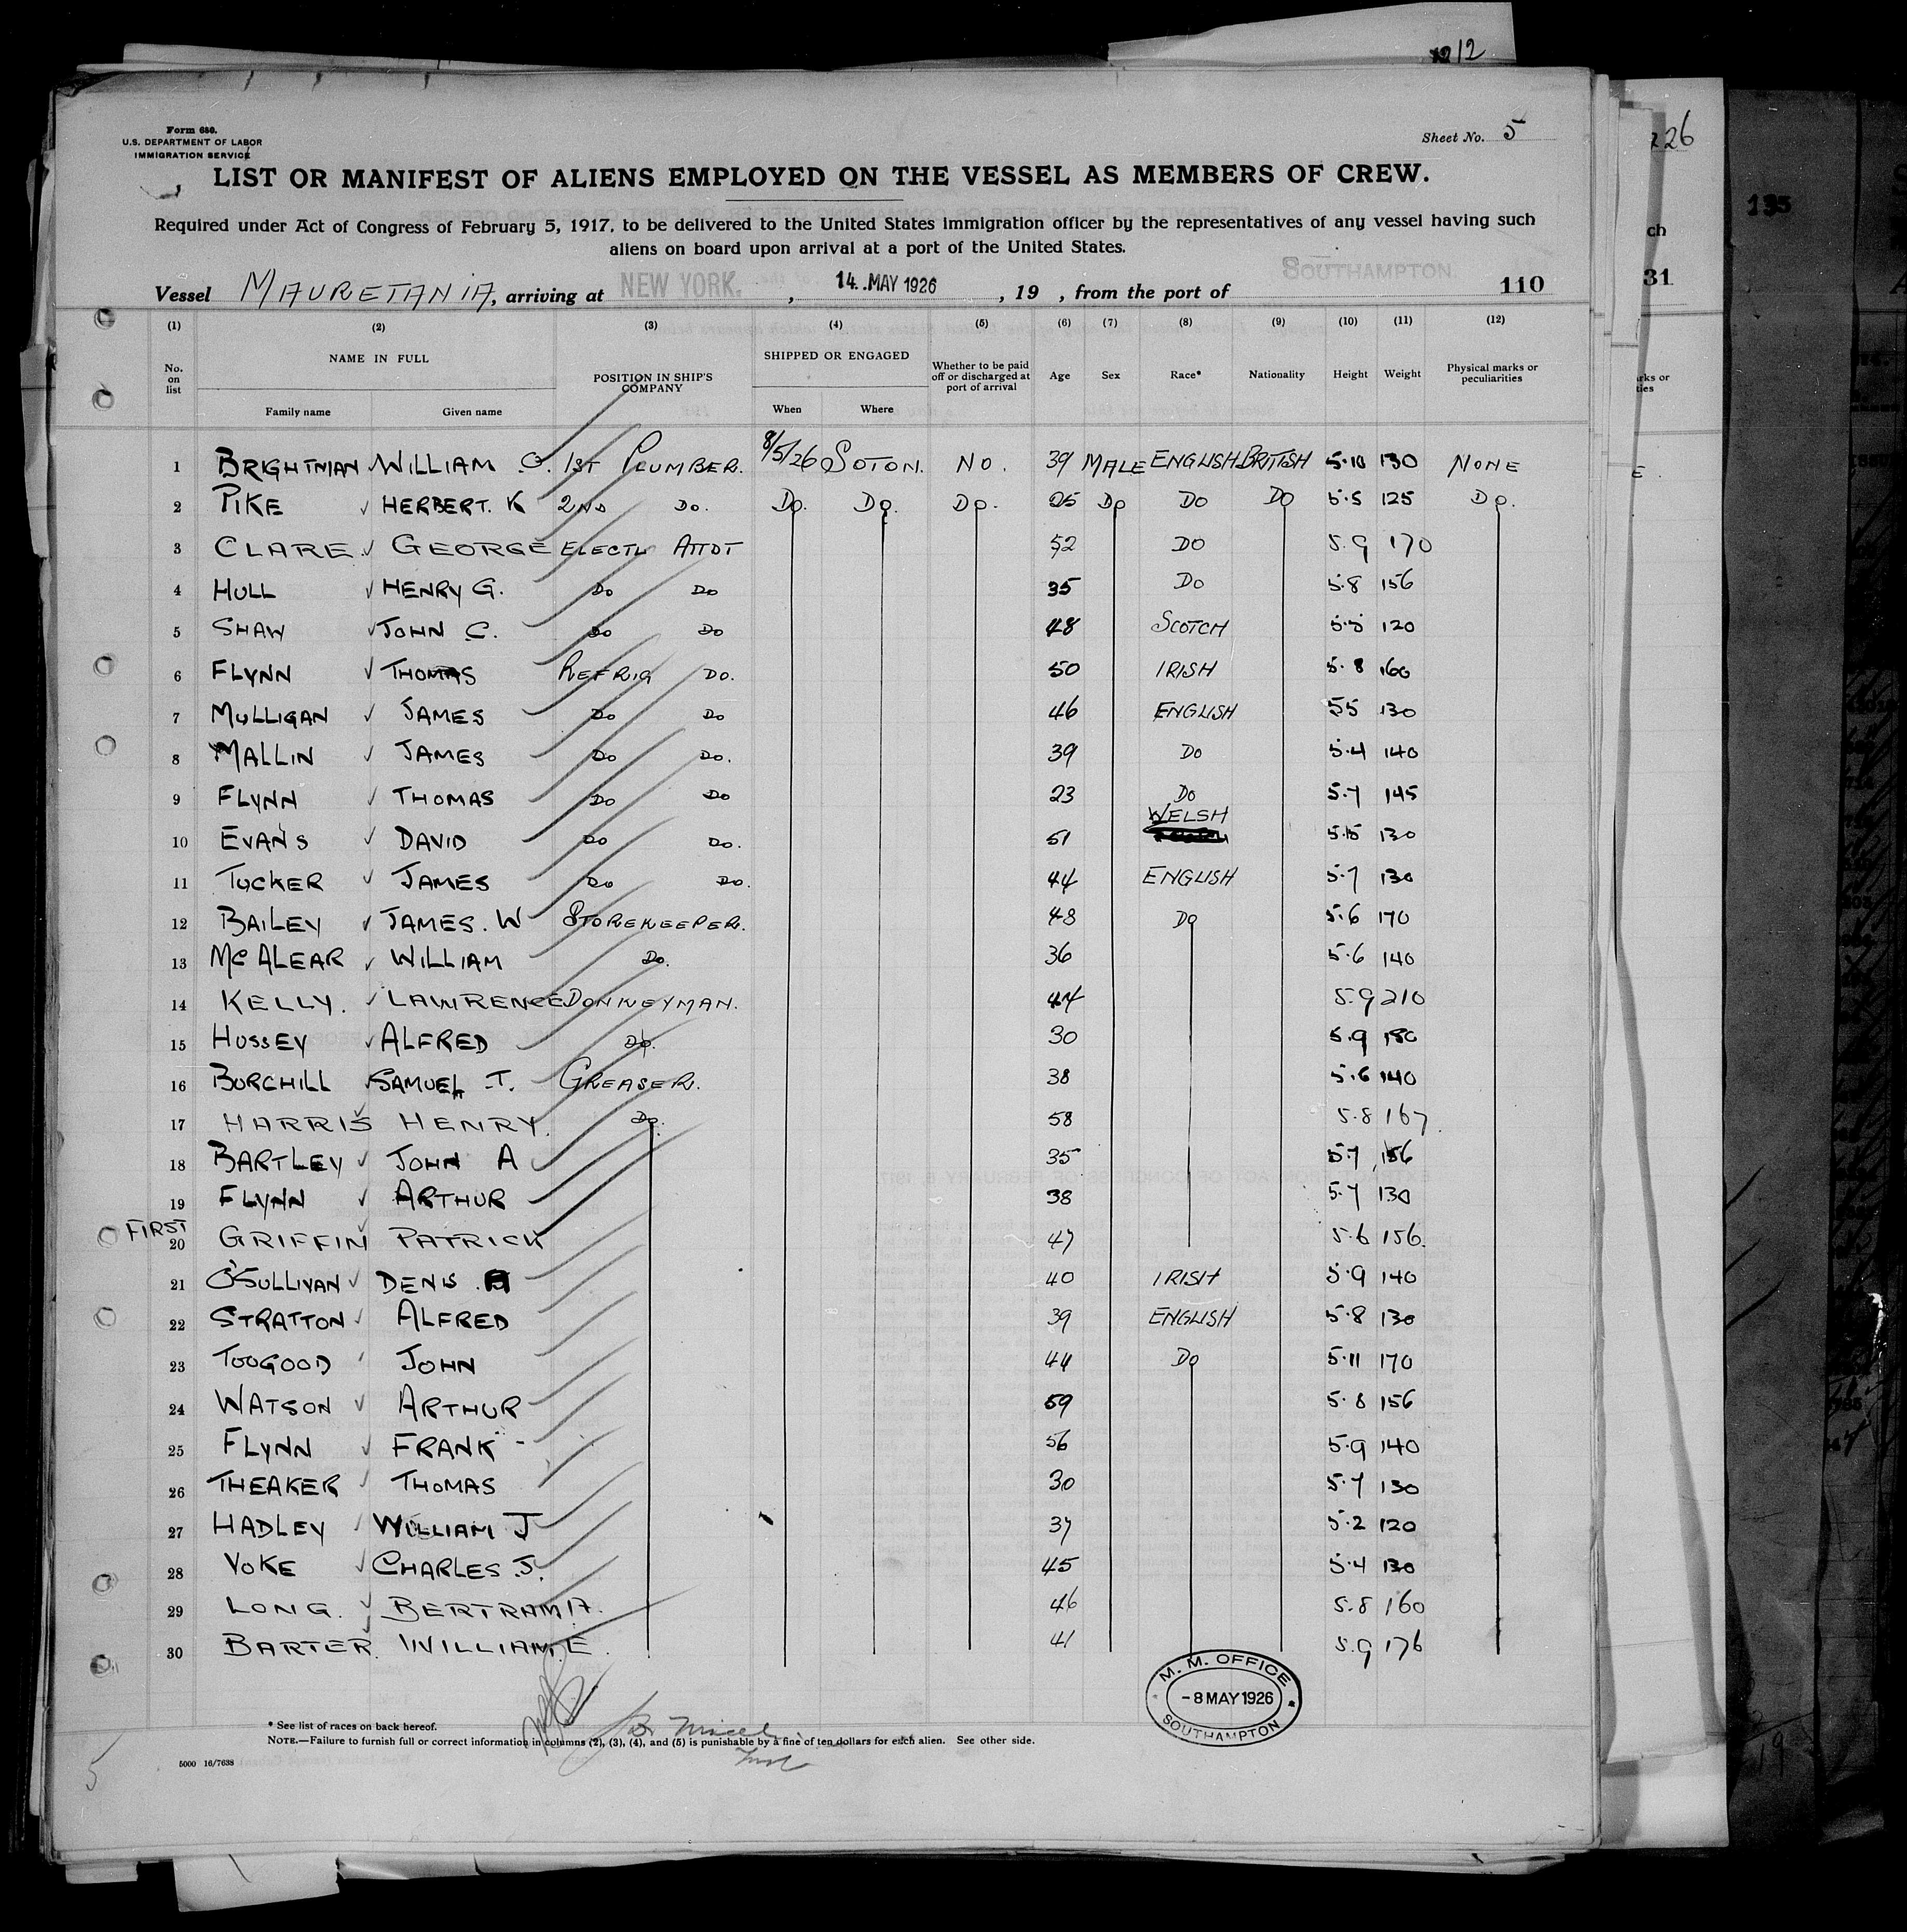 1212
Form 680.
U.S. DEPARTMENT OF LABOR
IMMIGRATION SERVICE
Sheet No. 5
LIST OR MANIFEST OF ALIENS EMPLOYED ON THE VESSEL AS MEMBERS OF CREW.
Required under Act of Congress of February 5, 1917, to be delivered to the United States immigration officer by the representatives of any vessel having such
aliens on board upon arrival at a port of the United States.
Vessel MAURETANIA, arriving at NEW YORK. , 14. MAY 1926 , 19 , from the port of SOUTHAMPTON 110
(1) (2) (3) (4) (5) (6) (7) (8) (9) (10) (11) (12)
No. on list NAME IN FULL Family name Given name POSITION IN SHIP'S COMPANY SHIPPED OR ENGAGED When Where Whether to be paid off or discharged at port of arrival Age Sex Race* Nationality Height Weight Physical marks or peculiarities
1 BRIGHTMAN WILLIAM O. 1ST PLUMBER. 8/5/26 SOTON. NO. 39 MALE ENGLISH BRITISH 5·10 130 NONE
2 PIKE HERBERT. K 2ND DO. DO. DO. DO. 25 DO DO DO 5·5 125 DO.
3 CLARE. GEORGE ELECTL ATTDT 52 DO 5.9 170
4 HULL HENRY G. DO DO 35 DO 5·8 156
5 SHAW JOHN C. DO DO 48 SCOTCH 5·5 120
6 FLYNN THOMAS REFRIG DO. 50 IRISH 5·8 160
7 MULLIGAN JAMES DO DO 46 ENGLISH 55 130
8 MALLIN JAMES DO DO. 39 DO 5·4 140
9 FLYNN THOMAS DO DO 23 DO 5·7 145
10 EVANS DAVID DO DO. 51 WELSH 130
11 TUCKER JAMES DO DO. 44 ENGLISH 5·7 130
12 BAILEY JAMES. W STOREKEEPER. 48 DO 5·6 170
13 MC ALEAR WILLIAM DO. 36 5·6 140
14 KELLY. LAWRENCE DONKEYMAN. 44 5.9 210
15 HUSSEY ALFRED DO. 30 5.9 180
16 BURCHILL SAMUEL .T. GREASER. 38 5·6 140
17 HARRIS HENRY. DO. 58 5.8 167.
18 BARTLEY JOHN A 35 5·7 156
19 FLYNN ARTHUR 38 5·7 130
FIRST
20 GRIFFIN PATRICK 47 5.6 156.
21 O'SULLIVAN DENIS . A 40 IRISH 5·9 140
22 STRATTON ALFRED 39 ENGLISH 5·8 130
23 TOOGOOD JOHN 44 DO 5·11 170
24 WATSON ARTHUR 59 5·8 156
25 FLYNN FRANK 56 5·9 140
26 THEAKER THOMAS 30 5·7 130
27 HADLEY WILLIAM J 37 5·2 120
28 VOKE CHARLES .J. 45 5·4 130
29 LONG. BERTRAM A. 46 5.8 160
30 BARTER. WILLIAM. E. 41 5.9 176
M. M. OFFICE
-8 MAY 1926
SOUTHAMPTON
* See list of races on back hereof.
NOTE.—Failure to furnish full or correct information in columns (2), (3), (4), and (5) is punishable by a fine of ten dollars for each alien. See other side.
5000 16/7638
5
26
ch
31
rks or
ties
E.
135